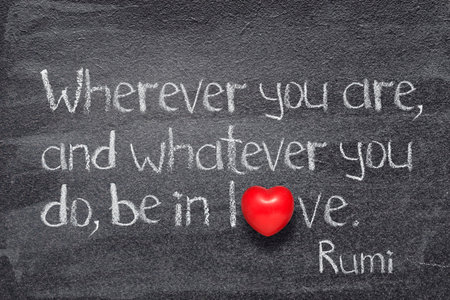 Wherever you are,
and whatever you
do, be in l❤ve.
Rumi